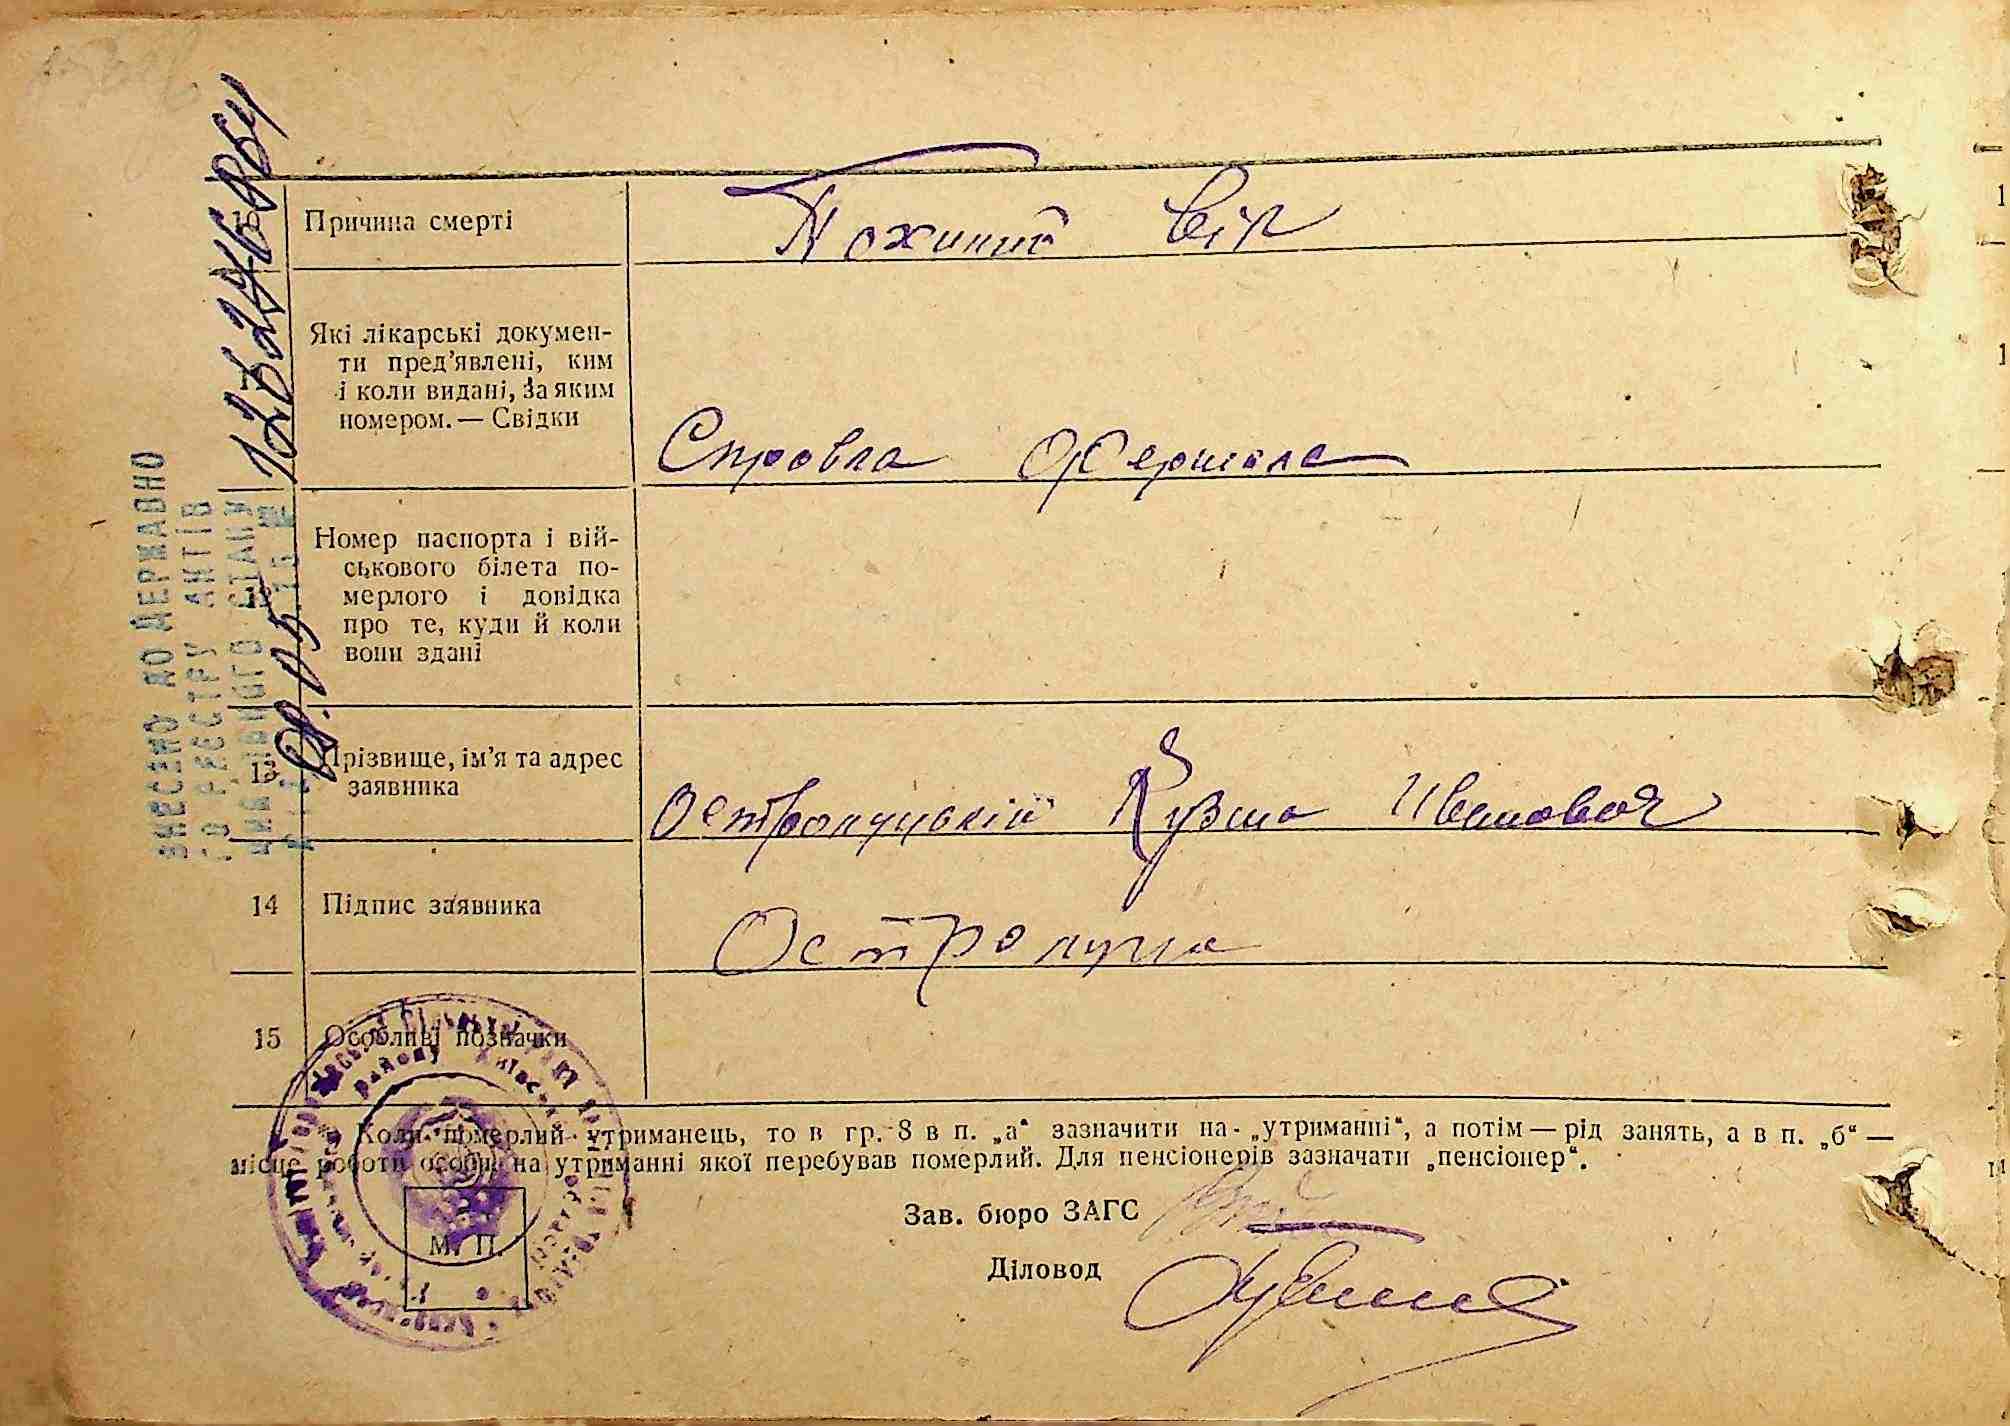 Причина смерті
Похиний вік
Які лікарські докумен-
ти пред'явлені, ким
і коли видані, за яким
номером. — Свідки
Справка фершала
Номер паспорта і вій-
ськового білета по-
мерлого і довідка
про те, куди й коли
вони здані
13 Прізвище, ім'я та адрес
заявника
Кузма Иванович
14 Підпис заявника
15 Особливі позначки
* Коли померлий утриманець, то в гр. 8 в п. „а“ зазначити на „утриманні“, а потім — рід занять, а в п. „б“ —
місце роботи особи, на утриманні якої перебував померлий. Для пенсіонерів зазначати „пенсіонер“.
Зав. бюро ЗАГС
Діловод
М. П.
ВНЕСЕНО ДО ДЕРЖАВНО
ГО РЕЄСТРУ АКТІВ
ЦИВІЛЬНОГО СТАНУ
району